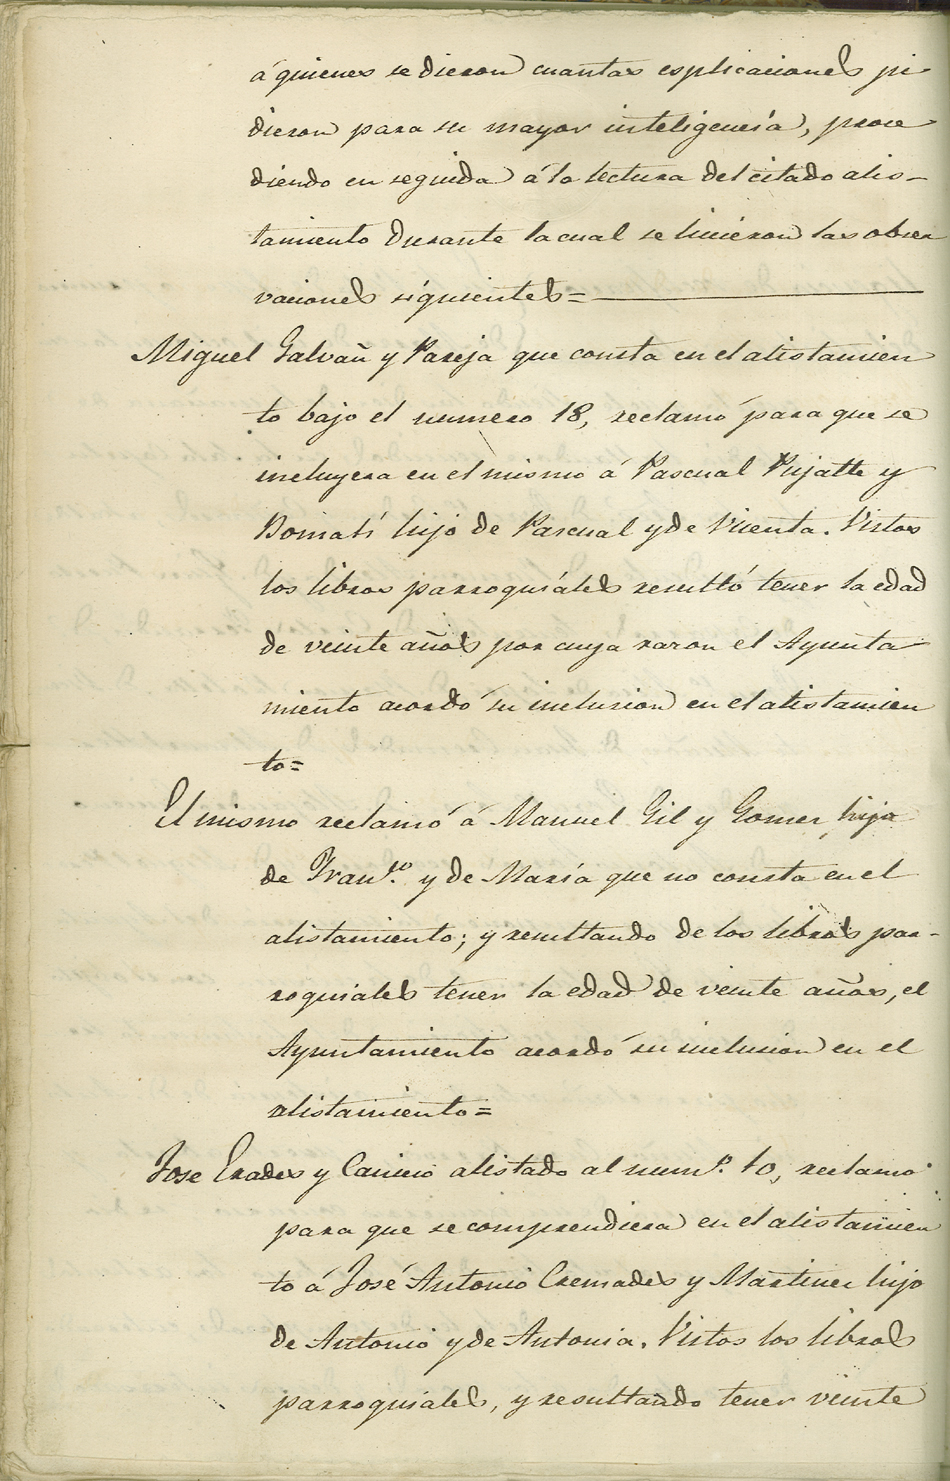 á quienes se dieron cuantas esplicaciones pi
dieron para su mayor inteligencia, proce
diendo en seguida á la lectura del citado alis-
tamiento durante la cual se hicieron las obser
vaciones siguientes=
Miguel Galvañ y Pareja que consta en el alistamien
to bajo el numero 18, reclamó para que se
incluyera en el mismo á Pascual Pujalte y
hijo de Pascual y de Vicenta. Vistos
los libros parroquiales resultó tener la edad
de veinte años por cuya razon el Ayunta
miento acordó su inclusion en el alistamien
to=
El mismo reclamó á Manuel Gil y Gomez hijo
de Fran.co y de María que no consta en el
alistamiento; y resultando de los libros par-
roquiales tener la edad de veinte años, el
Ayuntamiento acordó su inclusion en el
alistamiento=
Jose Erades y alistado al num.o 10, reclamó
para que se comprendiera en el alistamien
to á José Antonio Cremades y Martinez hijo
de Antonio y de Antonia. Vistos los libros
parroquiales, y resultando tener veinte